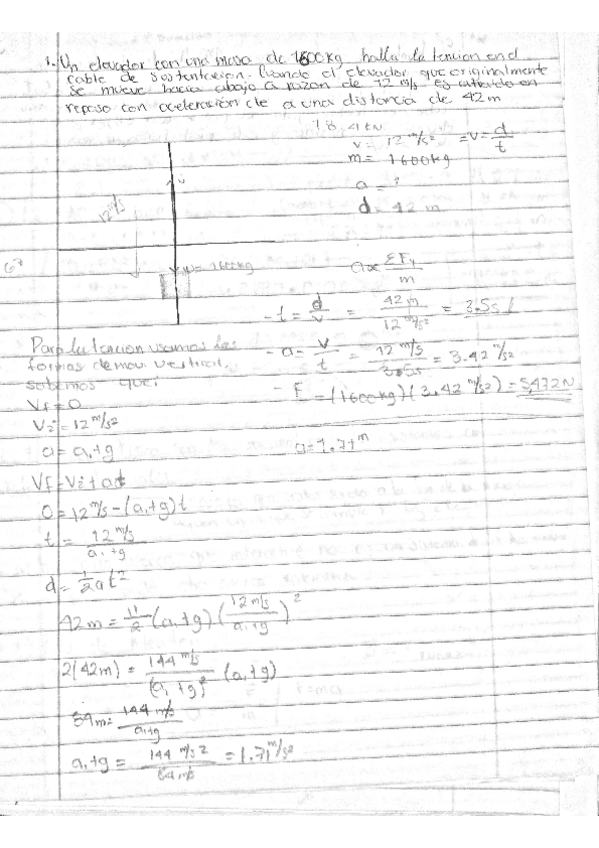 1. Un elevador con una masa de 1600 kg halla la tension en el
cable de sustentacion. Cuando el elevador que originalmente
se mueve hacia abajo a razon de 12 m/s es en
reposo con aceleración cte a una distancia de 42 m
18.4 kN
v = 12 m/s² = v = d/t
m = 1600 kg
a = ?
d = 42 m
12 m/s
= 1600 kg
a = ΣFy/m
- t = d/v = 42 m/12 m/s² = 3.5 s
Para la tension usamos las
formas de mov. vertical,
sabemos que:
- a = v/t = 12 m/s/3.5 s = 3.42 m/s²
- F = (1600 kg)(3.42 m/s²) = 5,472 N
Vf = 0
Vi = 12 m/s²
a = a₁+g
a = 1.71 m
Vf = Vi + at
0 = 12 m/s - (a₁+g)t
t = 12 m/s/a₁+g
d = 1/2 at²
42 m = 1/2 (a₁+g) (12 m/s/a₁+g)²
2(42m) = 144 m/s/(a₁+g)² (a₁+g)
84 m = 144 m/s/a₁+g
a₁+g = 144 m/s²/84 m/s = 1.71 m/s²